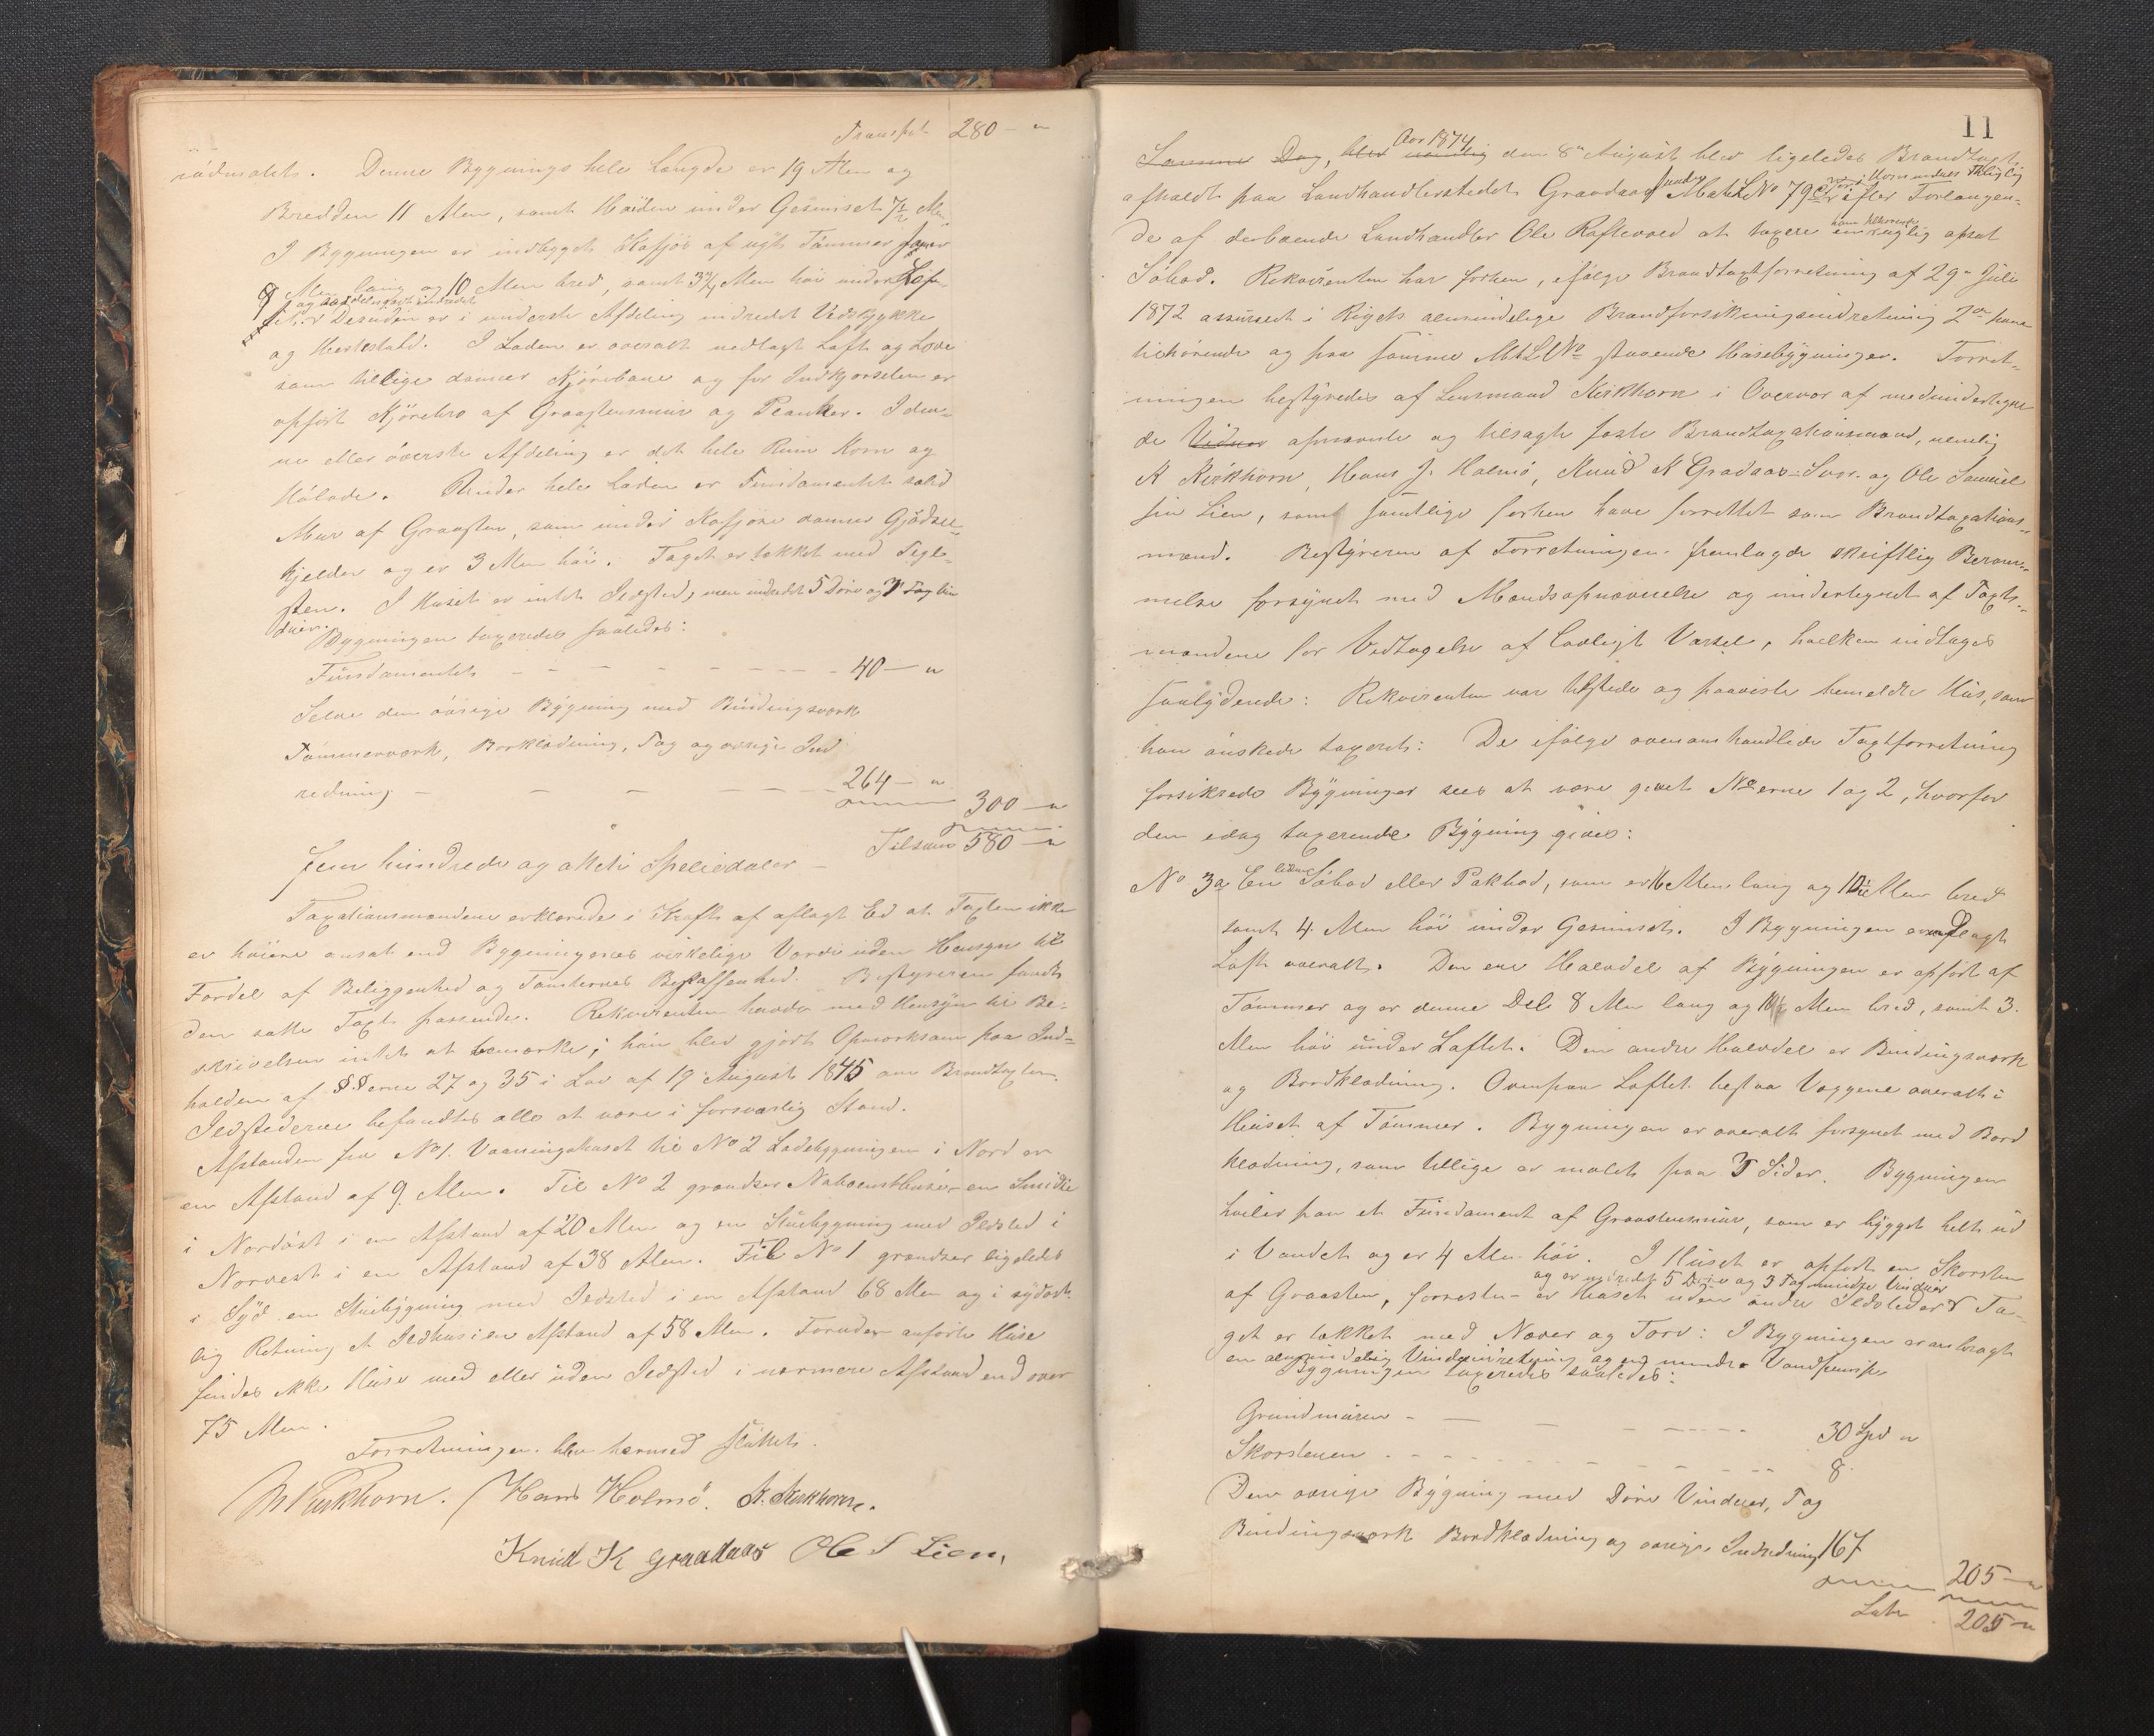 Transpt. 280 - "
rödmalet. Denne Bygnings hele Længde er 19 Alen og
Bredden 11 Alen, samt Høiden under Gesimset 7½ Alen
I Bygningen er indbygt Kofjøs af nyt Tømmer
9 Alen lang og 10 Alen bred, samt 3¼ Alen høi under
Desuden er i underste Afdeling indredet Vedskykke
og Hestestald. I Laden er overalt nedlagt Loft og Love
som tillige danner Kjørebane og for Indkjørselen er
opført Kjørebro af Graastensmur og Planker. I den-
ne eller øverste Afdeling er det hele Rum Korn og
Hölade. Under hele Laden er Fundamentet solid
Mur af Graasten, som under Kofjøse danner Gjødsel-
kjelder og er 3 Alen høi. Taget er tækket med Tegl-
sten. I Huset er intet Ildsted, men indredet 5 Døre og 3 Fag Vin
duer.
Bygningen taxeredes saaledes:
Fundamentet - - - - - - - 40 - "
Selve den øvrige Bygning med Bindingsværk
Tømmerværk, Bordklædning, Tag og øvrige Ind
redning - - - - - 264 - "
300 - "
Tilsam 580 - "
fem hundrede og otteti Speciedaler -
Taxationsmændene erklærede i Kraft af aflagt Ed at Taxten ikke
er høiere ansat end Bygningernes virkelige Værdi uden Hensyn til
Fordel af Beliggenhed og Tomternes Beskaffenhed. Bestyreren fandt
den satte Taxt passende. Rekvirenten havde med Hensyn til Be-
skrivelsen intet at bemærke; han blev gjort Opmærksom paa Ind-
holden af §§erne 27 og 35 i Lov af 19 August 1845 om Brandtaxten.
Ildstederne befandtes alle at være i forsvarlig Stand.
Afstanden fra No 1. Vaaningshuset til No 2 Ladebygningen i Nord er
en Afstand af 9. Alen. Til No 2 grændser Naboens Huse - en Smidie
i Nordøst i en Afstand af 20 Alen og en Stuebygning med Ildsted i
Norvest i en Afstand af 38 Alen. Til No 1 grændser ligeledes
i Syd en Stuebygning med Ildsted i en Afstand 68 Alen og i sydøst-
lig Retning et Ildhus i en Afstand af 58 Alen. Foruden anførte Huse
findes ikke Huse med eller uden Ildsted i nærmere Afstand end over
75 Alen.
Forretningen blev hermed sluttet.
Kirkhorn. Hans Holmø. K. Kirkhorn.
Knud K Graadaas Ole S Lien,
11
Aar 1874
Samme Dag, blev nemlig den 8de August blev ligeledes Brandtaxt
afholdt paa Landhandlerstedet Graadaas under Matr L No 79 efter Forlangen-
de af derboende Landhandler Ole Raftevold at taxere en ham tilhørende nylig opsat
Søbod. Rekvirenten har forhen, ifølge Brandtaxtforretning af 29de Juli
1872 assureret i Rigets almindelige Brandforsikringsindretning 2de ham
tilhørende og paa samme Mt L No staaende Huusebygninger. Forret-
ningen bestyredes af Lensmand Kirkhorn i Overvær af medundertegne
de Vidner opnævnte og tilsagte faste Brandtaxationsmænd, nemlig
K Kirkhorn, Hans J. Holmø, Knud K Graadaas og Ole Samuel
sen Lien, som samtlige forhen have forrettet som Brandtaxations-
mænd. Bestyreren af Forretningen fremlagde skriftlig Beram-
melse forsynet med Mændsopnævnelse og undertegnet af Taxts-
mændene for Vedtagelse af lovligt Varsel, hvilken indtages
saalydende: Rekvirenten var tilstede og paaviste bemeldte Hus, som
han ønskede taxeret: De ifølge ovenomhandlede Taxtforretning
forsikrede Bygninger sees at være givet Noerne 1 og 2, hvorfor
den idag taxerende Bygning gives:
No 3a En Søbod eller Pakbod, som er 16 Alen lang og 10½ Alen bred
samt 4 Alen høi under Gesimset. I Bygningen er nedlagt
Loft overalt. Den ene Halvdel af Bygningen er opført af
Tømmer og er denne Del 8 Alen lang og 10½ Alen bred, samt 3.
Alen høi under Loftet. Den andre Halvdel er Bindingsværk
og Bordklædning. Ovenpaa Loftet bestaa Væggene overalt i
Huset af Tømmer. Bygningen er overalt forsynet med Bord
klædning, som tillige er malet paa 3 Sider. Bygningen
hviler paa et Fundament af Graastensmur, som er bygget helt ud
i Vandet og er 4 Alen høi. I Huset er opført en Skorsten
og er indredet 5 Døre og 3 Fag mindre Vinduer
af Graasten, forresten er Huset uden andre Ildsteder. Ta-
get er tækket med Næver og Torv: I Bygningen er anbragt
en almindelig Vindeindretning og en mindre Vandpumpe
Bygningen taxeredes saaledes:
Grundmuren - - - - - - 30 Spd "
Skorstenen - - - - - - 8.
Den øvrige Bygning med Døre Vinduer, Tag
Bindingsværk Bordklædning og øvrige Indredning 167
205 - "
Lat. 205 - "